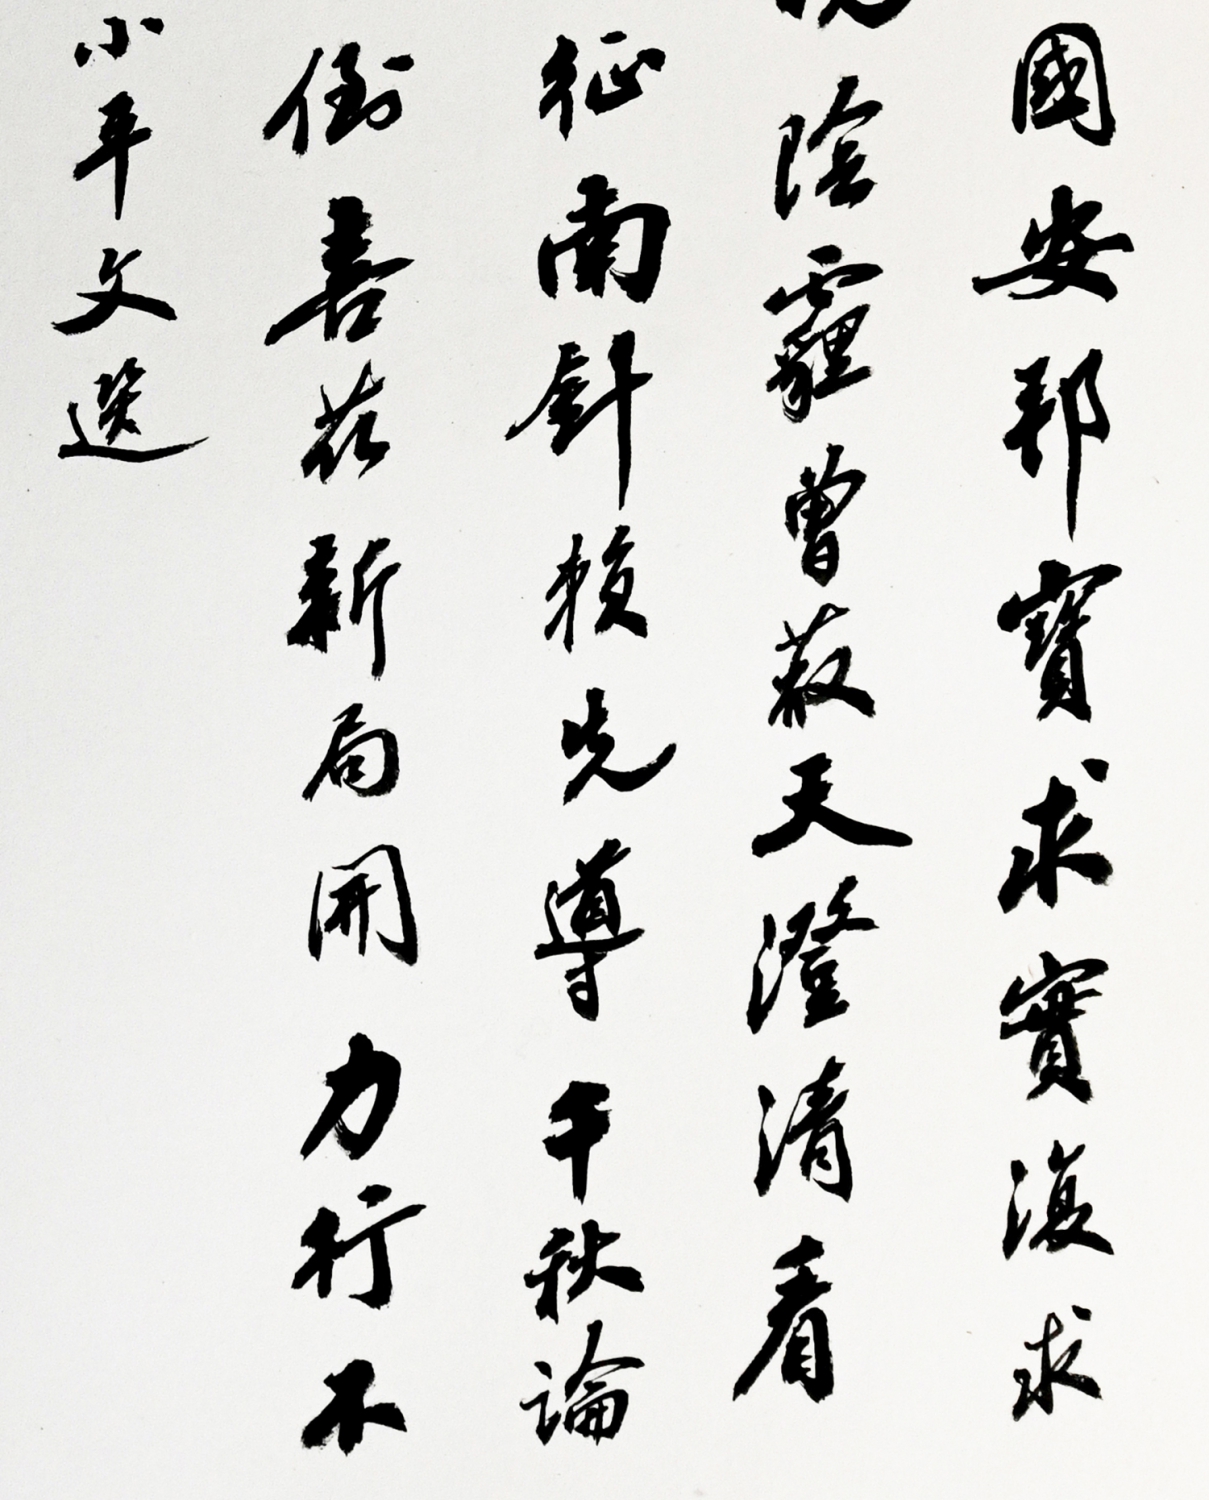 國安邦寶求實復求
陰霾曾蔽天澄清看
征南針賴先導千秋論
衡喜茲新局開力行不
小平文選